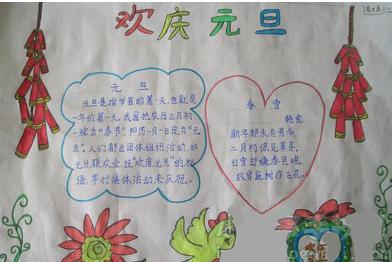 欢庆元旦
元旦
元旦是指岁首的第一天,也就是
一年的第一天,我国把农历正月初
一称为"春节",阳历一月一日定为"元
旦"。人们都会团体组织活动,如
元旦联欢会、挂"欢度元旦"的标
语,举行集体活动来庆祝。
春雪
韩愈
新年都未有芳华
二月初惊见草芽。
白雪却嫌春色晚
故穿庭树作飞花。
欢庆